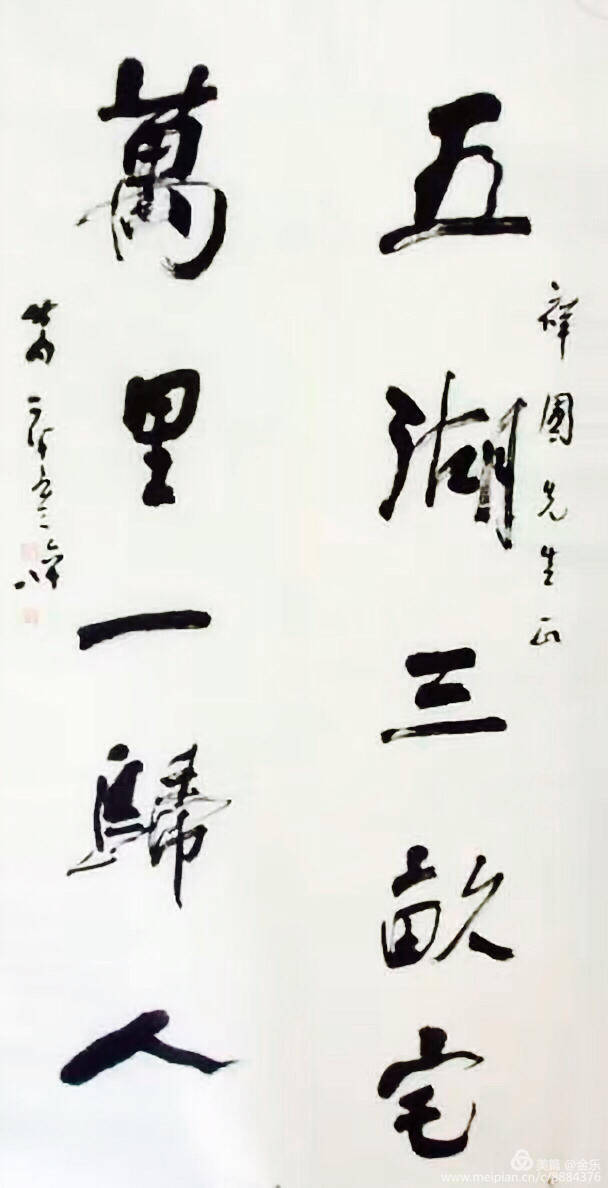 五湖三畝宅
祥圃先生正
萬里一歸人
美篇 @金乐
www.meipian.cn/c/8884376